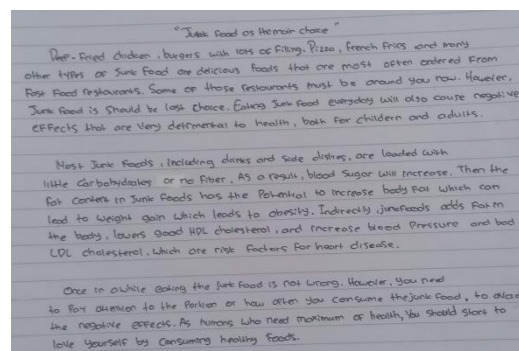 "Junk Food as the main choice"
Deep-Fried chicken, burgers with lots of filling. Pizza, French Fries and many
other types of Junk Food are delicious foods that are most often ordered From
Fast Food restaurants. Some of those restaurants must be around you now. However,
Junk Food is should be last choice. Eating Junk Food everyday will also cause negative
effects that are very detrimental to health, both for childern and adults.
Most Junk Foods, including drinks and side dishes, are loaded with
little carbohydrates or no fiber. As a result, blood sugar will increase. Then the
fat content in Junk Foods has the Potential to increase body fat which can
lead to weight gain which leads to obesity. Indirectly, junkfoods adds fat in
the body, lowers good HDL cholesterol, and increase blood Pressure and bad
LDL cholesterol, which are risk factors for heart disease.
Once in awhile eating the junk food is not wrong. However, you need
to Pay attention to the Portion or how often you consume the junk food, to avoid
the negative effects. As humans who need maximum of health, You should start to
love yourself by consuming healthy foods.